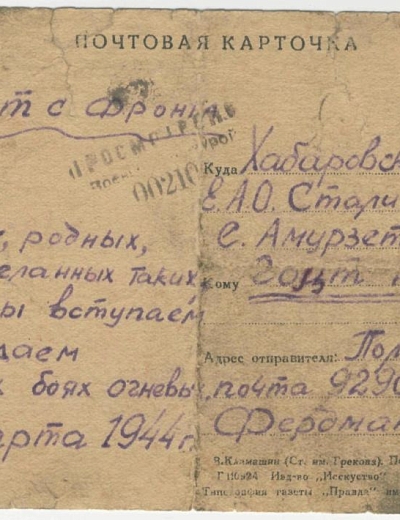 ПОЧТОВАЯ КАРТОЧКА
т с фронта
ПРОСМОТРЕНО
Военной Цензурой
00210
, родных,
еланных таких
ы вступаем
даем
х боях огневы
арта 1944 г.
Куда Хабаровс
Е.А.О. Стали
с. Амурзет
Кому
Адрес отправителя: Пол
почта 9290
Фердман
В. Климашин (Ст. им. Грекова). По
Г110924 Изд-во „Искусство"
Типография газеты „Правда" им